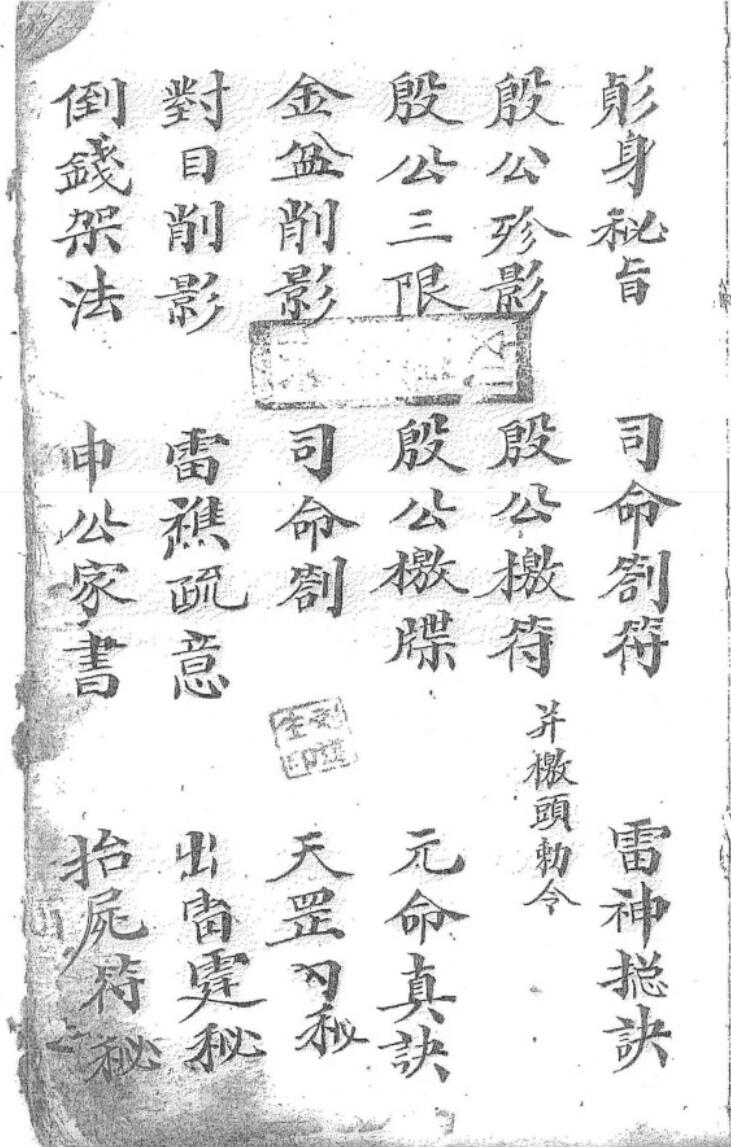 身秘旨 司命劄符 雷神捴訣
殷公殄影 殷公檄符 并檄頭勅令
殷公三限 殷公檄牒 元命真訣
金盆削影 司命劄 天罡秘
對目削影 雷醮疏意 出雷霆秘
倒錢架法 申公家書 抬屍符秘